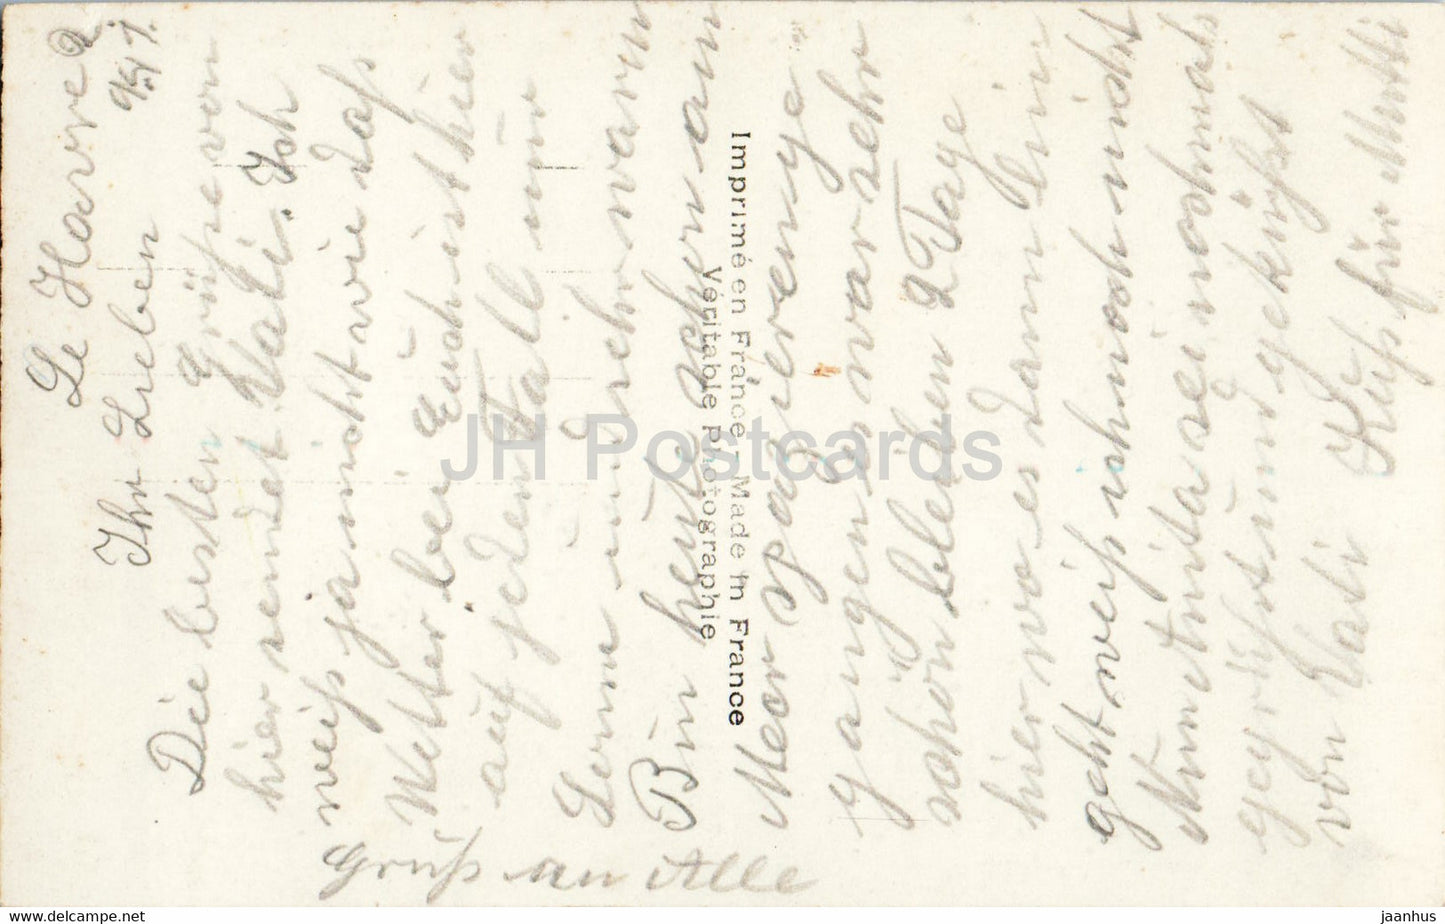 Le Havre 2
9/XI 7.
Ihr Lieben
Die besten Grüße von
hier sendet Vati. Ich
weiß ja nicht wie daß
Wetter bei Euch ist hier
auf jeden Fall nur
Sonne und sehr warm
Bin heute schon am
Meer spazieren ge
gangen es war sehr
schön bleiben 2 Tage
hier wo es dann hin
geht weiß ich noch nicht
Nun Anita sei nochmals
gegrüßt und geküßt
von Vati Kuß für Mutti
Gruß an Alle
Imprimé en France - Made in France
Véritable Photographie
JH Postcards
hippostcard.com/store/jaanhus
jaanhus